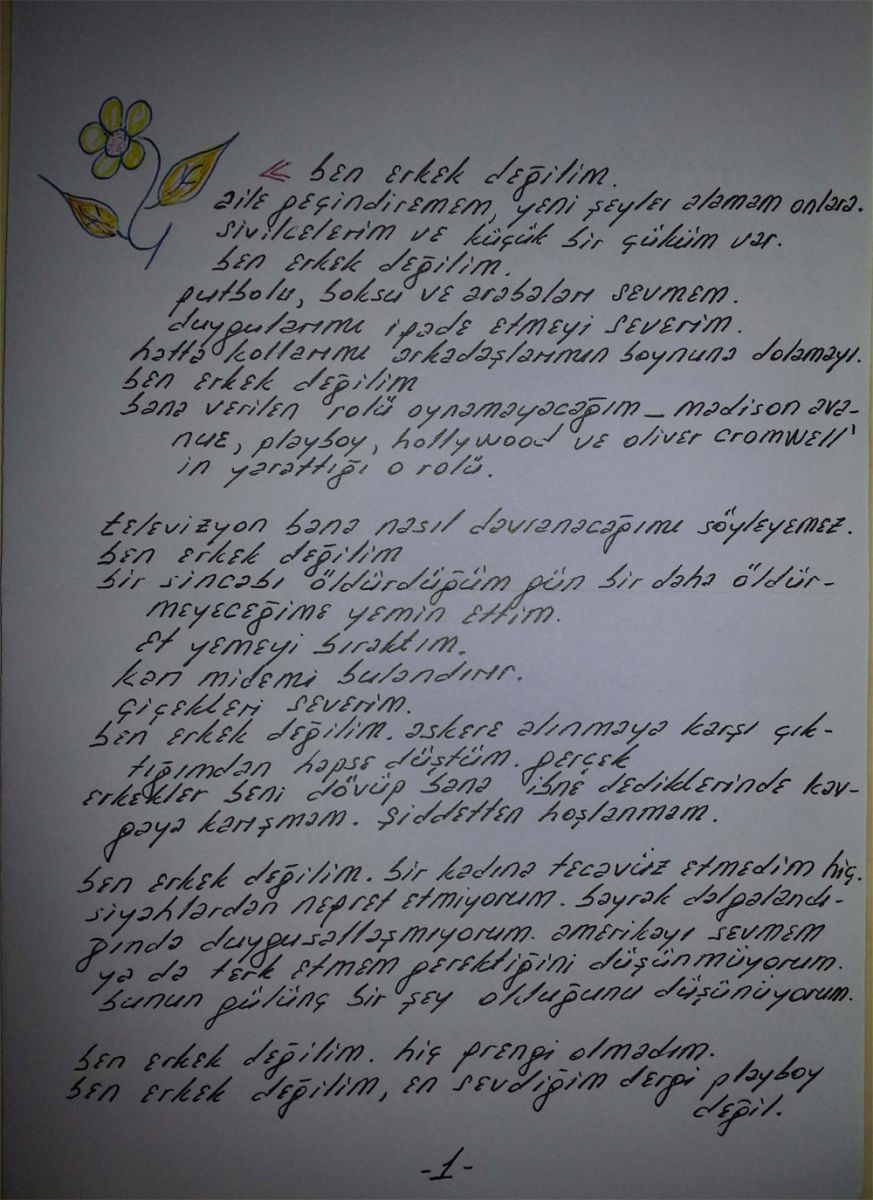 « ben erkek değilim.
aile geçindiremem, yeni şeyler alamam onlara.
sivilcelerim ve küçük bir çüküm var.
ben erkek değilim.
futbolu, boksu ve arabaları sevmem.
duygularımı ifade etmeyi severim.
hatta kollarımı arkadaşlarımın boynuna dolamayı.
ben erkek değilim
bana verilen rolü oynamayacağım_ madison ava-
nue, playboy, hollywood ve oliver cromwell'
in yarattığı o rolü.
televizyon bana nasıl davranacağımı söyleyemez.
ben erkek değilim
bir sincabı öldürdüğüm gün bir daha öldür-
meyeceğime yemin ettim.
et yemeyi bıraktım.
kan midemi bulandırır.
çiçekleri severim.
ben erkek değilim. askere alınmaya karşı çık-
tığımdan hapse düştüm. gerçek
erkekler beni dövüp bana 'ibne' dediklerinde kav-
gaya karışmam. şiddetten hoşlanmam.
ben erkek değilim. bir kadına tecavüz etmedim hiç.
siyahlardan nefret etmiyorum. bayrak dalgalandı-
ğında duygusallaşmıyorum. amerikayı sevmem
ya da terk etmem gerektiğini düşünmüyorum.
bunun gülünç bir şey olduğunu düşünüyorum.
ben erkek değilim. hiç frengi olmadım.
ben erkek değilim, en sevdiğim dergi playboy
değil.
-1-